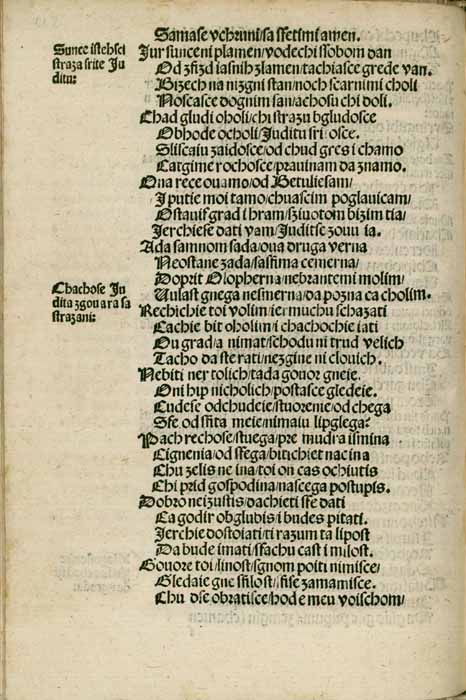 Samase vchinni/sa ssetimi amen.
Sunce istehsci
straza srite Ju
ditu:
Jur sunceni plamen/vodechi ssobom dan
Od zfizd iasnih zlamen/tachiasce grede van.
Bizech na nizgni stan/noch scarnimi choli
Noscasce dognim san/achosu chi doli.
Chad gludi oholi/chi strazu bgludosce
Obhode ocholi/Juditu sri osce.
Sliscaiu zaidosce/od chud gres i chamo
Catgime rochosce/prauinam da znamo.
Ona rece ouamo/od Betuliesam/
J putie moi tamo/chuascim poglauicam/
Ostauif grad i hram/sziuotom bizim tia/
Jerchiese dati vam/Juditse zouu ia.
Ada samnom sada/oua druga verna
Neostane zada/sassima cemerna/
Doprit Olopherna/nebrantemi molim/
Uulast gnega nesmerna/da pozna ca cholim.
Chachose Ju
dita zgouara sa
strazani:
Rechichie toi volim/ier muchu schazati
Cachie bit oholim/i chachochie iati
Ou grad/a nimat/schodu ni trud velich
Tacho da ste rati/nezgine ni clouich.
Nebiti ner tolich/tada gouor gneie.
Oni hip nicholich/postasce gledeie.
Cudese odchudeie/stuorenie/od chega
Sfe od sfita meie/nimaiu lipglega?
Pach rechose/stuega/pre mudra ismina
Cignenia/od sfega/bitichiet nacina
Chu zelis ne ina/toi on cas ochiutis
Chi prid gospodina/nascega postupis.
Dobro neizustis/dachieti sfe dati
Ca godir obglubis/i budes pitati.
Jerchie dostoiati/ti razum ta lipost
Da bude imati/sfachu cast i milost.
Gouore toi/linost/sgnom poiti nimisce/
Gledaie gne sfilost/sise zamamisce.
Chu dse obratisce/hod e meu voischom/